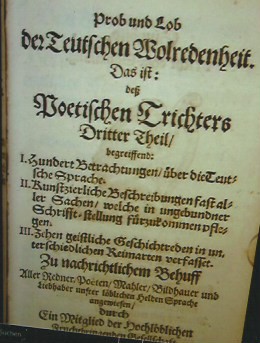 Prob und Lob
der Teutschen Wolredenheit.
Das ist:
deß
Poetischen Trichters
Dritter Theil/
begreiffend:
I. Hundert Betrachtungen/ über die Teut-
sche Sprache.
II. Kunstzierliche Beschreibungen fast al-
ler Sachen/ welche in ungebundner
Schrifft-stellung fürzukommen pfle-
gen.
III. Zehen geistliche Geschichtreden in un-
terschiedlichen Reimarten verfasset.
Zu nachrichtlichem Behuff
Aller Redner/ Poëten/ Mahler/ Bildhauer und
Liebhaber unsrer löblichen Helden Sprache
angewiesen/
durch
Ein Mitglied der Hochlöblichen